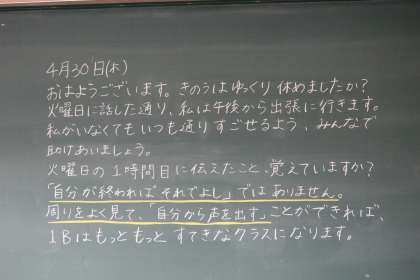 4月30日(木)
おはようございます。きのうはゆっくり休めましたか?
火曜日に話した通り、私は午後から出張に行きます。
私がいなくてもいつも通りすごせるよう、みんなで
助けあいましょう。
火曜日の1時間目に伝えたこと、覚えていますか?
「自分が終わればそれでよし」ではありません。
周りをよく見て、「自分から声を出す」ことができれば、
1Bはもっともっとすてきなクラスになります。